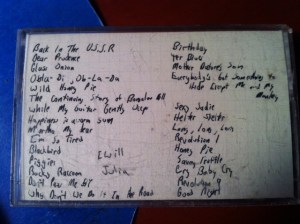 Back In The U.S.S.R
Dear Prudence
Glass Onion
Obla-Di, Ob-La-Da
Wild Honey Pie
The Continuing Story of Bungalow Bill
While My Guitar Gently Weep
Happiness is a warm gun
Martha My Dear
I'm So Tired
Blackbird
Piggies
Rocky Raccoon
Don't Pass Me By
Why Don't We Do It In the Road
I Will
Julia
Birthday
Yer Blues
Mother Natures Son
Everybody's but Something to
Hide Except Me and My
Monkey
Sexy Sadie
Helter Skelter
Long, Long, Long
Revolution 1
Honey Pie
Savoy Truffle
Cry Baby Cry
Revolution 9
Good Night